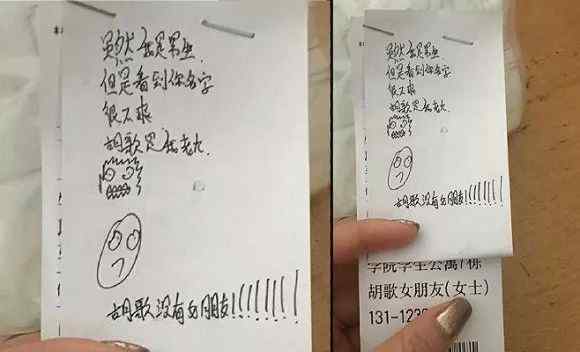 虽然我是男生
但是看到你名字
很不爽
胡歌是我老公.
胡歌没有女朋友!!!!!!!!
虽然我是男生
但是看到你名字
很不爽
胡歌是我老公.
胡歌没有女朋友!!!!!!!!
学院学生公寓7栋
胡歌女朋友(女士)
131-123